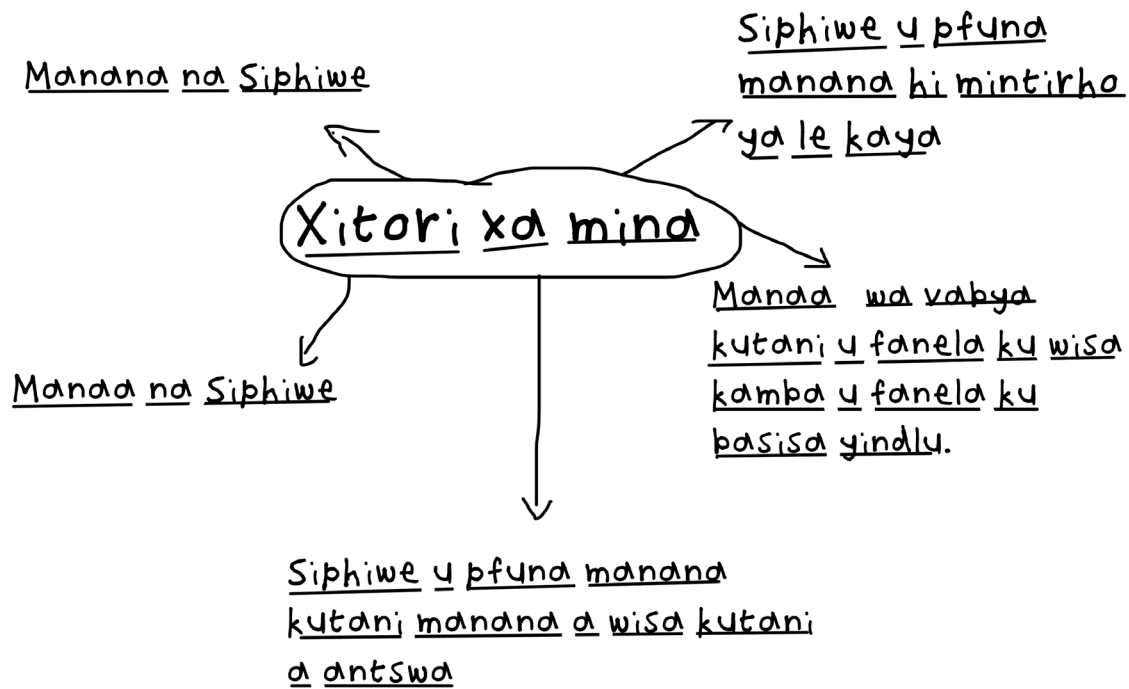 Manana na Siphiwe
Siphiwe u pfuna
manana hi mintirho
ya le kaya
Xitori xa mina
Manaa wa vabya
kutani u fanela ku wisa
kamba u fanela ku
basisa yindlu.
Manaa na Siphiwe
Siphiwe u pfuna manana
kutani manana a wisa kutani
a antswa